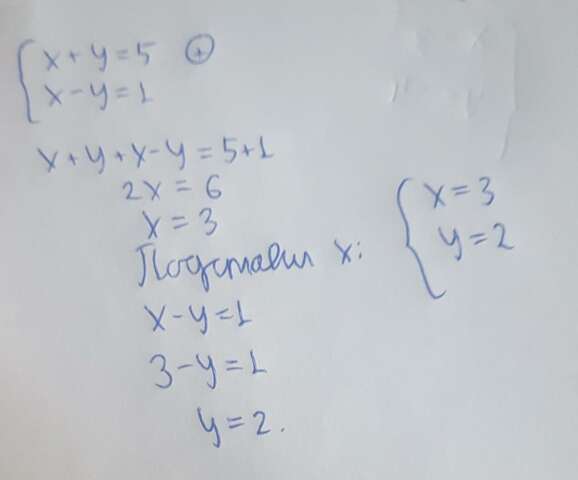 x + y = 5 ⊕
x - y = 1
x + y + x - y = 5 + 1
2x = 6
x = 3
Подставил x:
x - y = 1
3 - y = 1
y = 2.
x = 3
y = 2